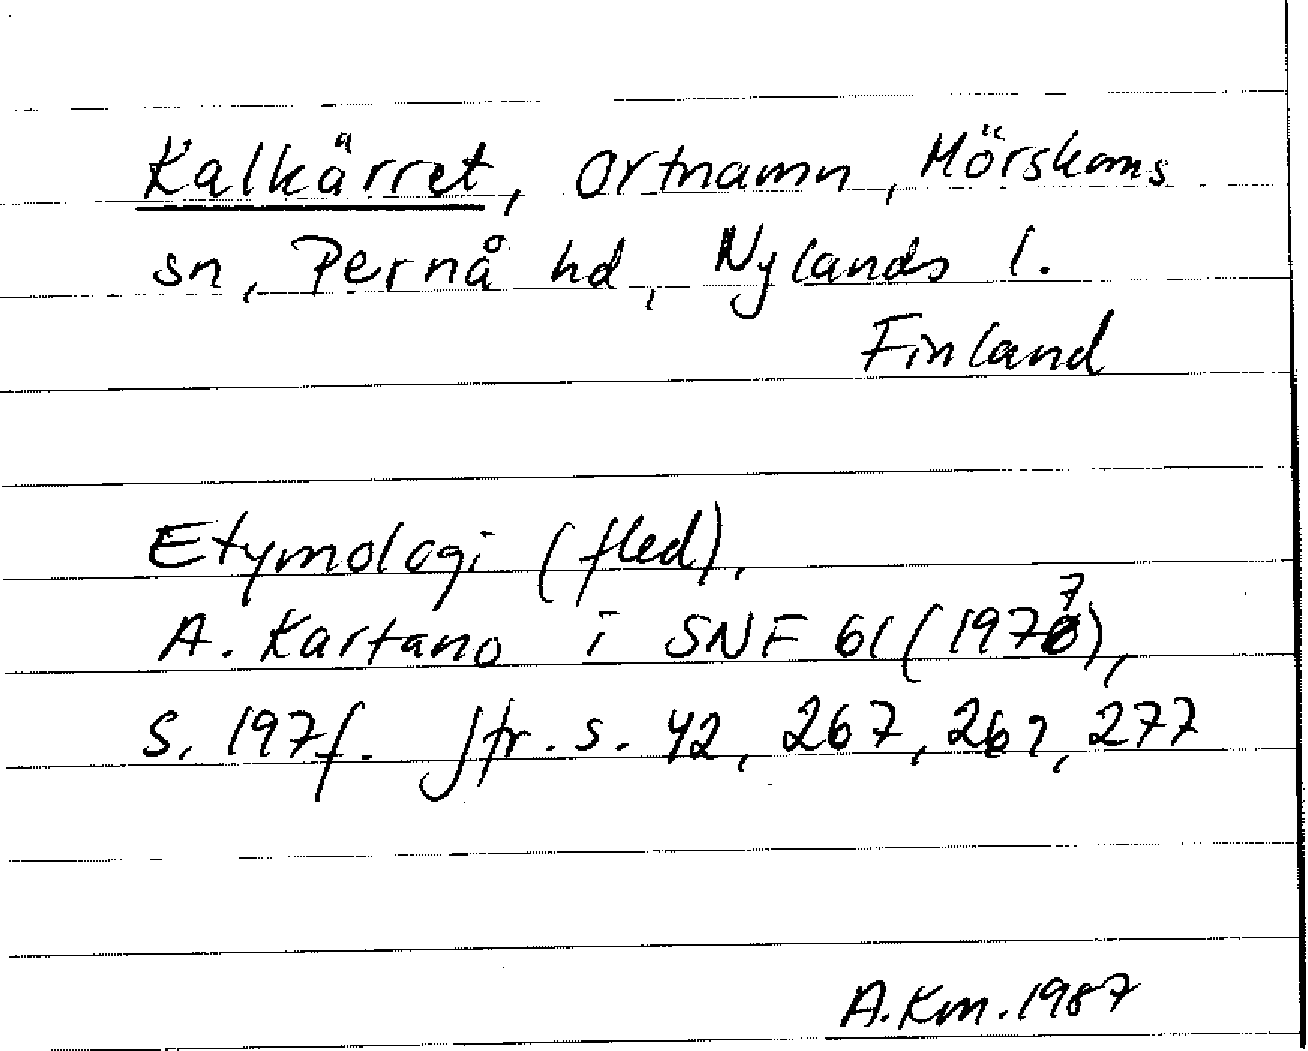 Kalkärret, ortnamn, Mörskoms
sn, Pernå hd, Nylands l.
Finland
Etymologi (fled).
A. Kartano i SNF 61 (1977),
s. 197f. Jfr. s. 42, 267, 267, 277
A.Km. 1987